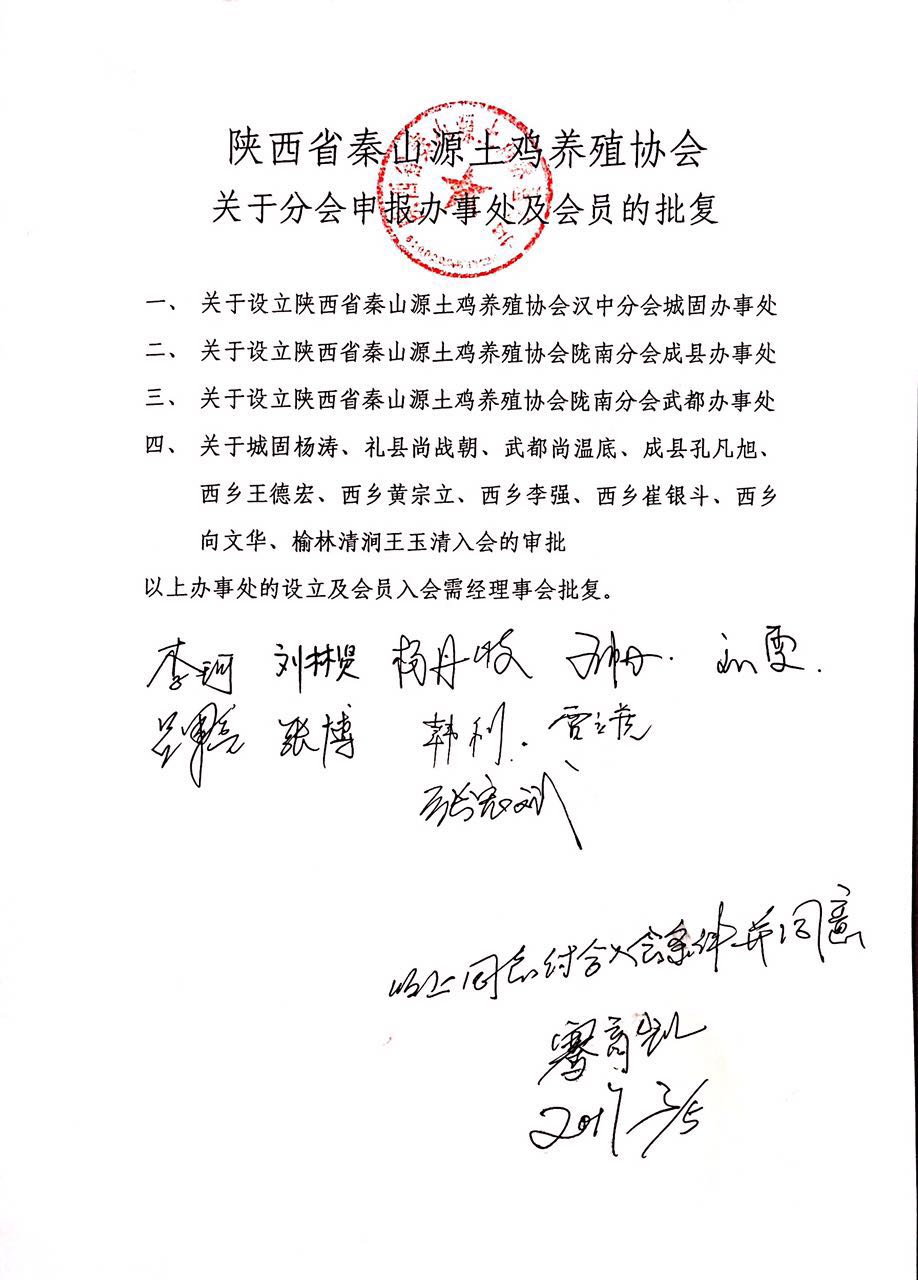 陕西省秦山源土鸡养殖协会
关于分会申报办事处及会员的批复
一、关于设立陕西省秦山源土鸡养殖协会汉中分会城固办事处
二、关于设立陕西省秦山源土鸡养殖协会陇南分会成县办事处
三、关于设立陕西省秦山源土鸡养殖协会陇南分会武都办事处
四、关于城固杨涛、礼县尚战朝、武都尚温底、成县孔凡旭、
西乡王德宏、西乡黄宗立、西乡李强、西乡崔银斗、西乡
向文华、榆林清涧王玉清入会的审批
以上办事处的设立及会员入会需经理事会批复。
李珂 刘林贤 杨丹 刘雯
张博 韩利
张宏斌
以上同志符合入会条件并同意